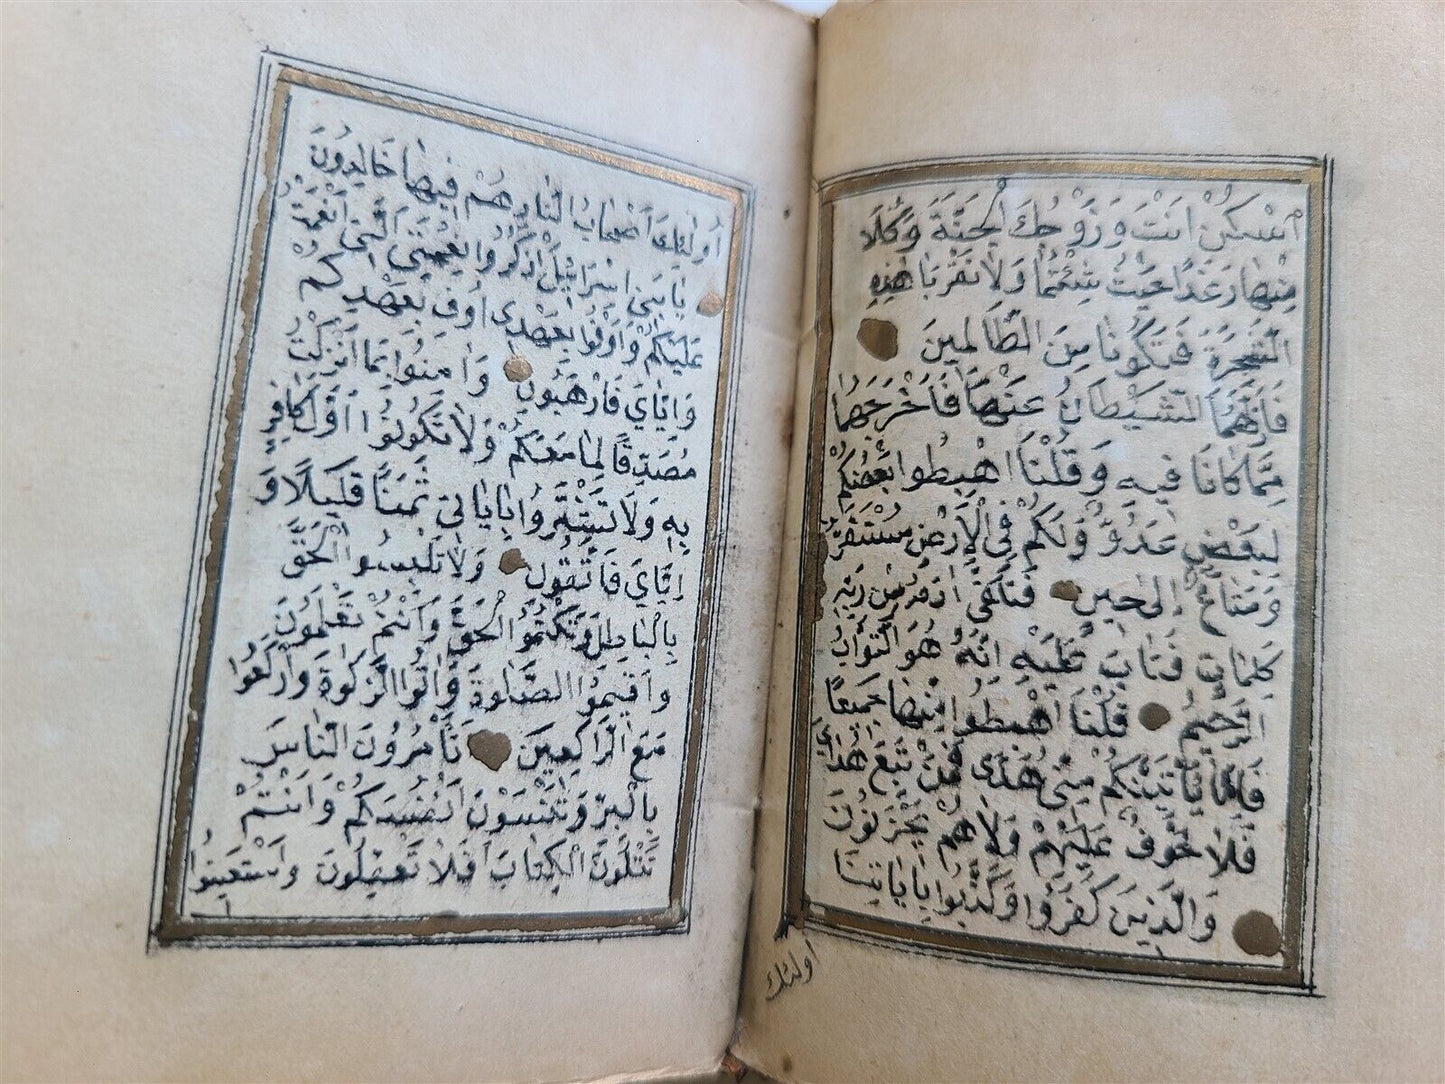 اَسْكُنْ اَنْتَ وَزَوْجُكَ الْجَنَّةَ وَكُلَا
مِنْهَا رَغَدًا حَيْثُ شِئْتُمَا وَلَا تَقْرَبَا هٰذِهِ
الشَّجَرَةَ فَتَكُونَا مِنَ الظَّالِمِينَ
فَاَزَلَّهُمَا الشَّيْطَانُ عَنْهَا فَاَخْرَجَهُمَا
مِمَّا كَانَا فِيهِ وَقُلْنَا اهْبِطُوا بَعْضُكُمْ
لِبَعْضٍ عَدُوٌّ وَلَكُمْ فِي الْاَرْضِ مُسْتَقَرٌّ
وَمَتَاعٌ اِلٰى حِينٍ فَتَلَقّٰى اٰدَمُ مِنْ رَبِّهِ
كَلِمَاتٍ فَتَابَ عَلَيْهِ اِنَّهُ هُوَ التَّوَّابُ
الرَّحِيمُ قُلْنَا اهْبِطُوا مِنْهَا جَمِيعًا
فَاِمَّا يَاْتِيَنَّكُمْ مِنِّي هُدًى فَمَنْ تَبِعَ هُدَايَ
فَلَا خَوْفٌ عَلَيْهِمْ وَلَا هُمْ يَحْزَنُونَ
وَالَّذِينَ كَفَرُوا وَكَذَّبُوا بِاٰيَاتِنَا
اولئك
اُولٰئِكَ اَصْحَابُ النَّارِ هُمْ فِيهَا خَالِدُونَ
يَا بَنِي اِسْرَائِيلَ اذْكُرُوا نِعْمَتِيَ الَّتِي اَنْعَمْتُ
عَلَيْكُمْ وَاَوْفُوا بِعَهْدِي اُوفِ بِعَهْدِكُمْ
وَاِيَّايَ فَارْهَبُونِ وَاٰمِنُوا بِمَا اَنْزَلْتُ
مُصَدِّقًا لِمَا مَعَكُمْ وَلَا تَكُونُوا اَوَّلَ كَافِرٍ
بِهِ وَلَا تَشْتَرُوا بِاٰيَاتِي ثَمَنًا قَلِيلًا وَ
اِيَّايَ فَاتَّقُونِ وَلَا تَلْبِسُوا الْحَقَّ
بِالْبَاطِلِ وَتَكْتُمُوا الْحَقَّ وَاَنْتُمْ تَعْلَمُونَ
وَاَقِيمُوا الصَّلٰوةَ وَاٰتُوا الزَّكٰوةَ وَارْكَعُوا
مَعَ الرَّاكِعِينَ تَاْمُرُونَ النَّاسَ
بِالْبِرِّ وَتَنْسَوْنَ اَنْفُسَكُمْ وَاَنْتُمْ
تَتْلُونَ الْكِتَابَ اَفَلَا تَعْقِلُونَ وَاسْتَعِينُوا